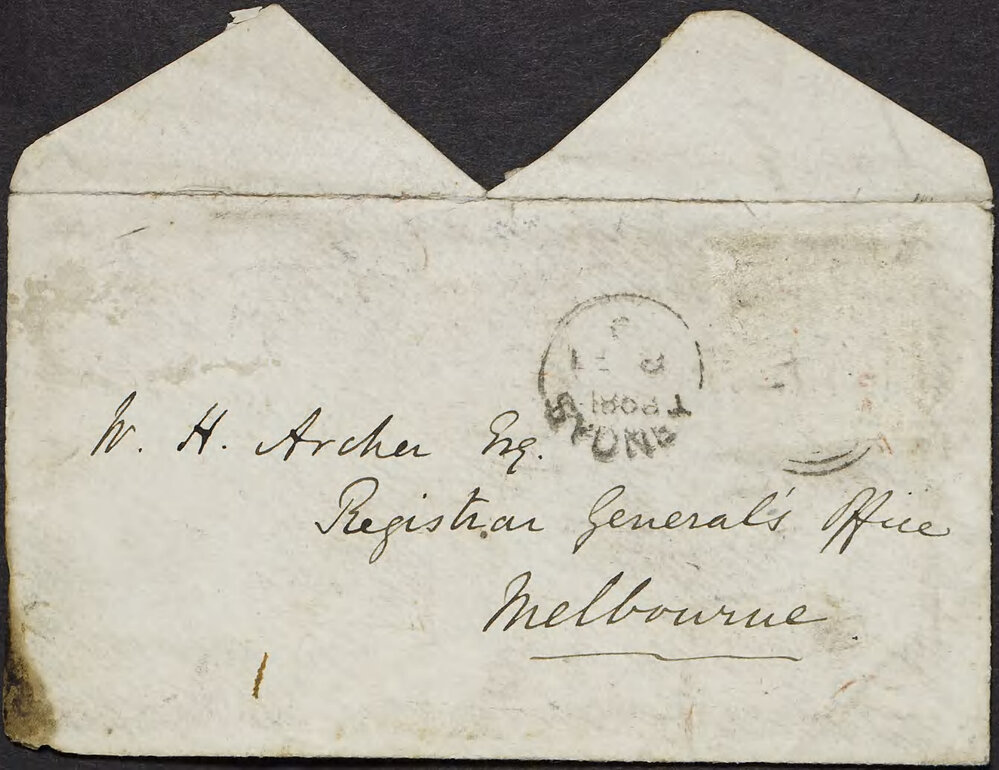 W. H. Archer Esq.
Registrar General's Office
Melbourne
SYDNEY